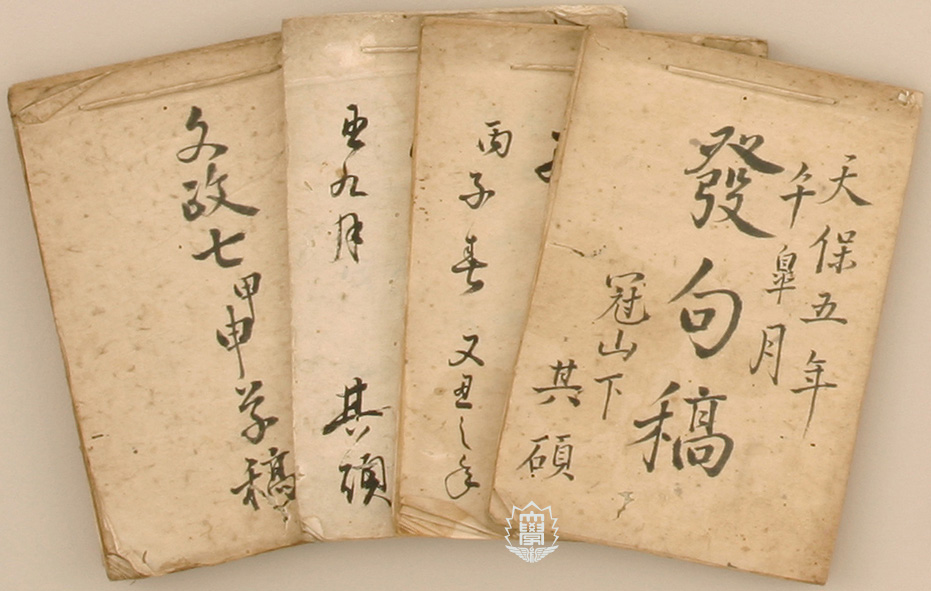 天保五年
午皐月
發句稿
冠山下
其碩
丙子春 又丑之年
丑九月
其碩
文政七甲申草稿
大學